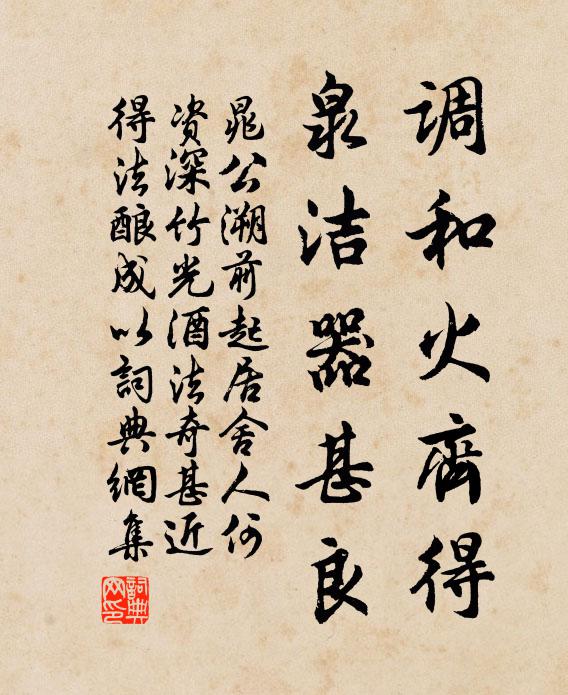 调和火齊得
泉洁器甚良
晁公溯前起居舍人何
资深竹光酒法奇甚近
得法酿成以詞典網集
詞典網印